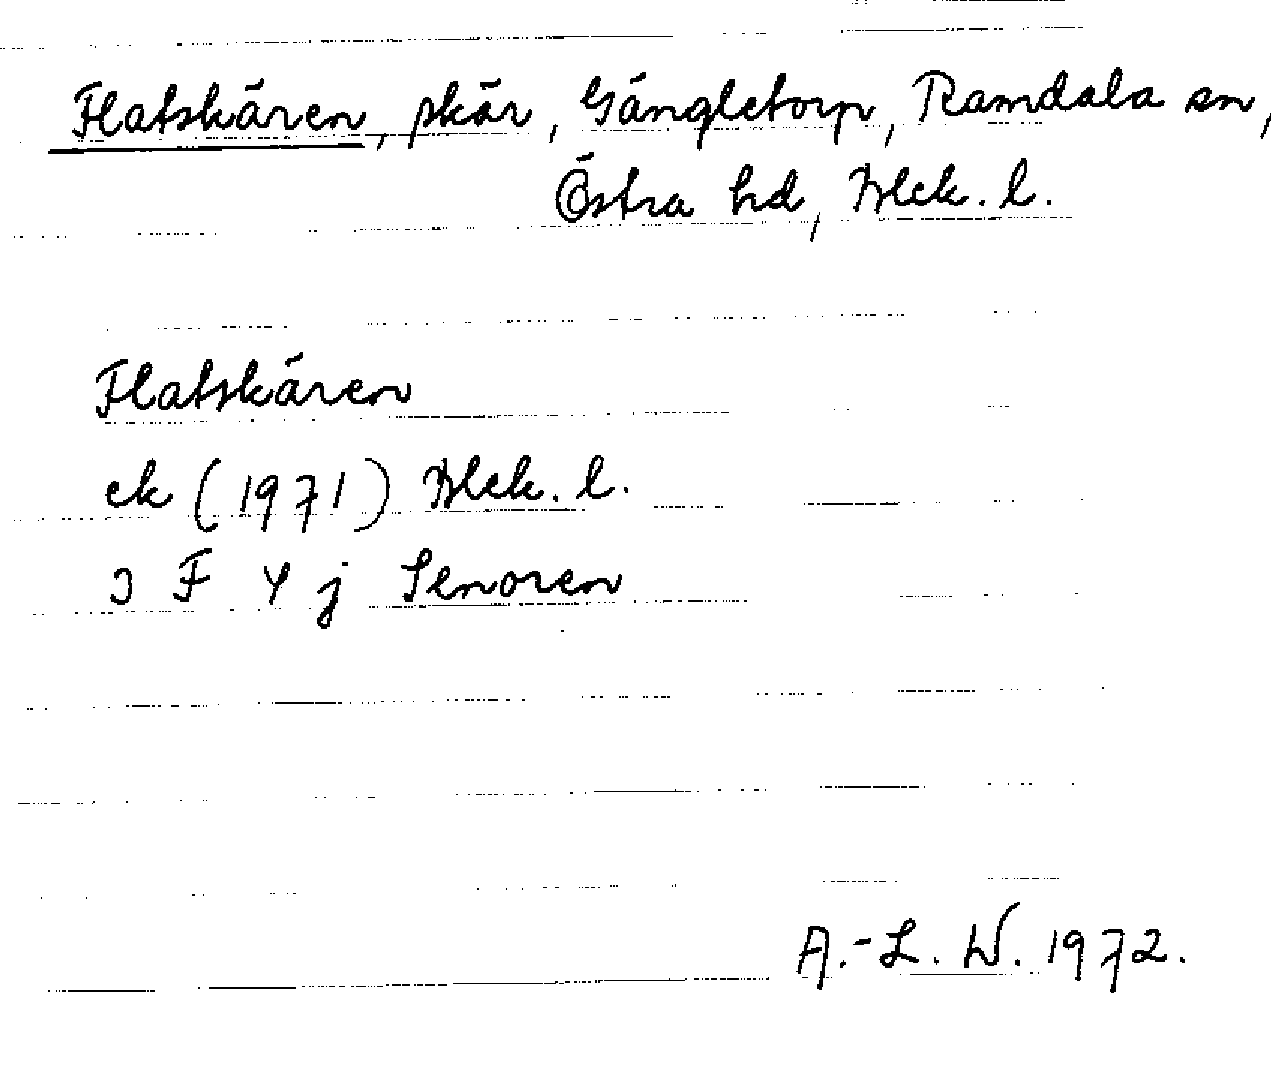 Flatskären, skär, Gängletorp, Ramdala sn,
Östra hd, Blek. l.
Flatskären
ek (1971) Blek. l.
3 F 4 j Senoren
A.-L. W. 1972.